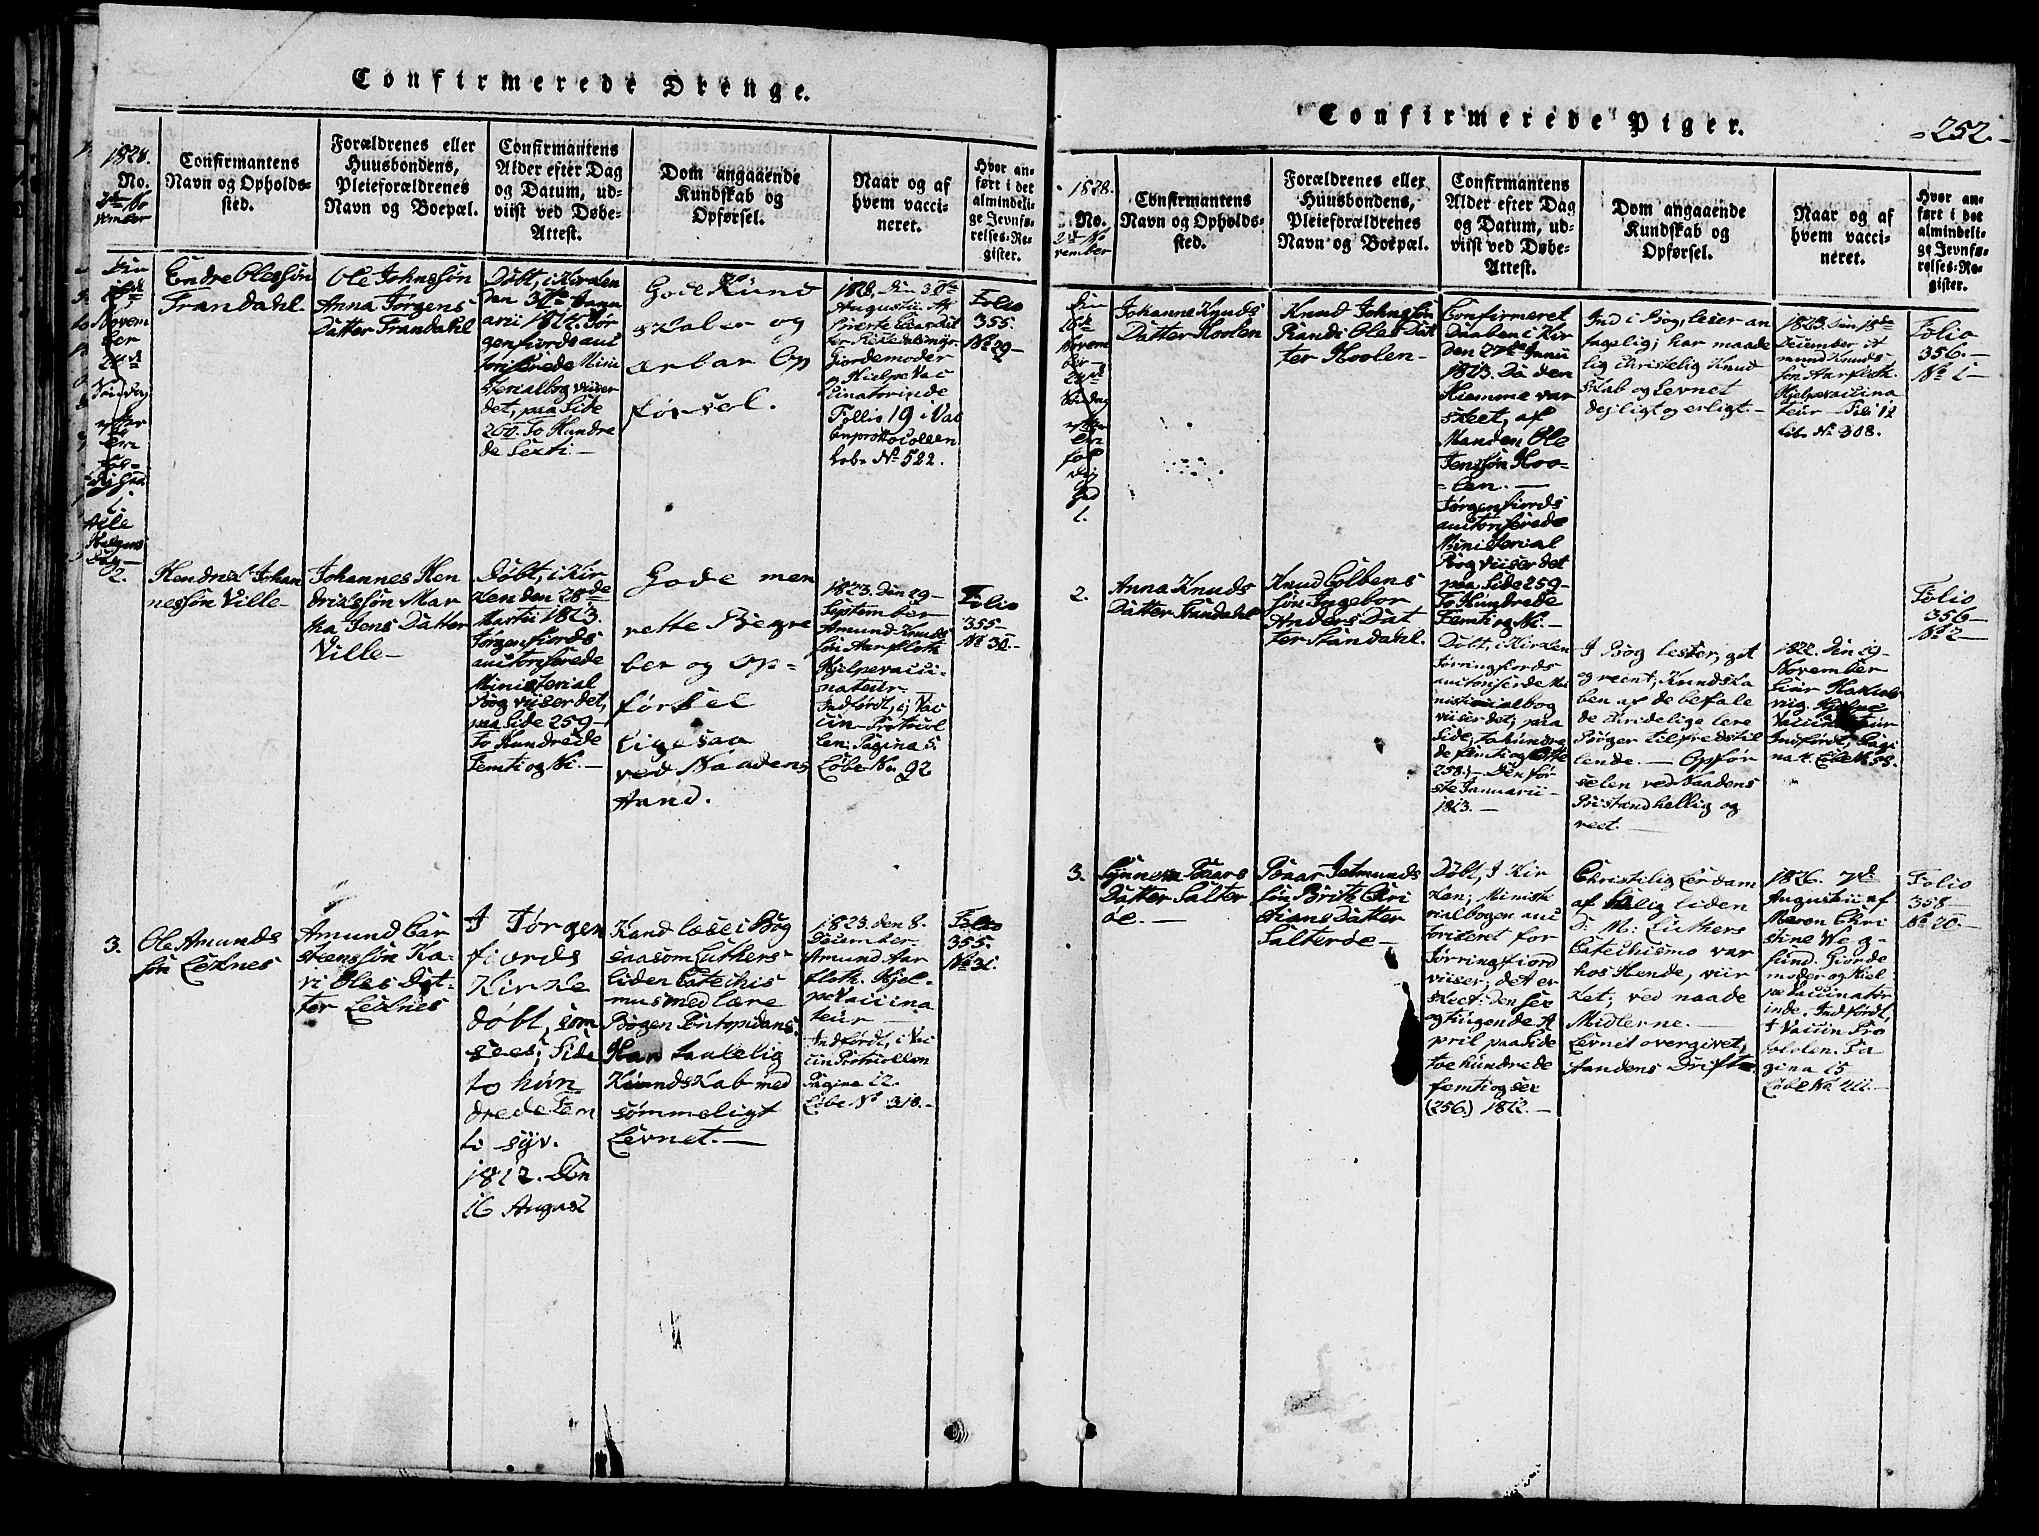 Confirmerede Drenge.
1828.
No.
2den No
vember
Confirmantens
Navn og Opholds-
sted.
Forældrenes eller
Huusbondens,
Pleieforældrenes
Navn og Boepæl.
Confirmantens
Alder efter Dag
og Datum, ud-
viist ved Døbe-
Attest.
Dom angaaende
Kundskab og
Opførsel.
Naar og af
hvem vacci-
neret.
Hvor an-
ført i det
almindeli-
ge Jevnfø-
relses-Re-
gister.
Novem
ber
Endre Olessøn
Frandahl.
Ole Johnssøn
Anna Jørgens
Datter Frandahl
Døbt, i Kirken
genfiords auc
toriserede Mini
sterialbog viiser
det, paa Side
260. To Hundre
de Sexti. —
Gode Kund
skaber og
ærbar Op
førsel.
Giordemoder
og Hielpe Vac
cinatorinde
Follio 19 i Vac
cinprottocollen
Løb. No 522.
Folio
355.
No 29 —
2.
Hendrik Johan
nessøn Ville —
Johannes Hen
drikssøn Mar
tha Jens Datter
Ville —
Døbt, i Kir
ken den 28de
Martii 1813.
Jørgenfiords
auctoriserede
Ministerial
Bog viiser det,
paa Side 259 —
To Hundrede
Femti og Ni. —
Gode men
rette Begre
ber og Op-
førsel
ligesaa
ved Naadens
Aand.
1823. Den 29 —
September
Amund Knuds
søn Aarfloth
Hjelpevacci-
nateur —
Indførdt, i Vac
cin-Protocol
len: Pagina 5.
Løbe No. 92
Folio
355 —
No 30 —
3.
Ole Amunds
søn Lexnes
Amund Car
steenssøn Ka-
ri Oles Dat-
ter Lexnes
I Jørgen
fiords
Kirke
døbt, som
sees; Side
to hun
drede Fem
ti syv.
1812. Den
16 August
Kand læse i Bog
saasom Luthers
liden Catechis
mus med lære
Bogen Pontopidans
Han taalelig
Kundskab med
sømmeligt
Levnet. —
1823. den 8.
December.
Amund Aar
floth. Hjel-
pe Vaccina
teur —
Indførdt, i Vac
cin Protocollen
Pagina 12.
Løbe No 310. —
Folio
355.
No 31.
Confirmerede Piger.
252.
1828.
No.
2den No
vember
Confirmantens
Navn og Opholds-
sted.
Forældrenes eller
Huusbondens,
Pleieforældrenes
Navn og Boepæl.
Confirmantens
Alder efter Dag
og Datum, ud-
viist ved Døbe-
Attest.
Dom angaaende
Kundskab og
Opførsel.
Naar og af
hvem vacci-
neret.
Hvor an-
ført i det
almindeli-
ge Jevnfø-
relses-Re-
gister.
1.
Johanne Knuds
Datter Hoolen
Knud Johnssøn
Randi Oles Dat
ter Hoolen —
Confirmeret
Daaben i Kir
den 27de Junii
1813. Da den
Hiemme var
skeet, af
Manden Ole
Jenssøn Hoo-
len. —
Jørgenfiords
auctoriserede
Ministerial
Bog viiser det
paa Side 259 —
To Hundrede
Femti og Ni. —
Ind i Bog, læser an
tagelig; har maade
lig christelig Kund
skab og Levnet
dejligt og ærligt. —
1823. Den 18de
December A
mund Knuds
søn Aarfloth
Hjelpevaccina
teur — Foli 12
Løb. No 308.
Folio
356. —
No 1 —
2.
Anna Knuds
Datter Standahl
Knud Colbens
søn Ingebor
Anders Dat
ter Standahl.
Døbt, i Kirken
Jørringfiords
auctoriserede Mi
nisterialbog
viiser det; paa
Side, tohundre
de femti og Otte
258. — Den før
ste Januarii —
1813. —
I Bog læser, got
og reent; Kundska
ben af de befale
de Christelige lære
Bøger tilfredstil
lende. — Opfør
selen ved Naadens
Bistand hellig og
reet. —
1822. Den 29 —
November
Indførdt, Pagi
na 4. Løbe No 58.
Folio
356 —
No 2 —
3.
Synneva Baars
Datter Sæter
øe. —
Baar Jetmunds
søn Brite Chri
stians Datter
Sæterøe —
Døbt, I Kir
ken; Ministe
rialbogen auc
toriteret for
Jørringfiord
viiser; det er
skeet: den sex
og tiugende A
pril paa Side
toe hundrede
femti og sex
(256.) 1812. —
Christelig Lærdam
af Salig liden
D: M: Luthers
Catechismo var
hos Hende, viir
ket; ved naade
Midlerne. —
Levnet overgivet,
Aandens Drifte.
1826. 7de
Augustii af
Maren Chri
stine Weg-
sund. Giorde
moder og Hiel
pe Vaccinator
inde. Indførdt,
I Vaccin Pro
tokolen. Pa
gina 15
Løbe No 411. —
Folio
358 —
No 20. —